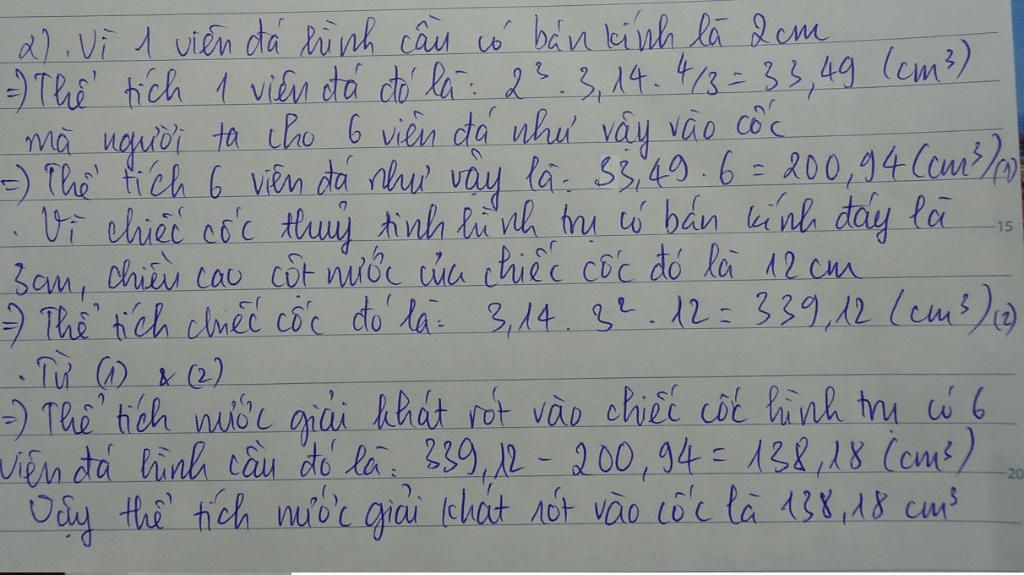 a). Vì 1 viên đá hình cầu có bán kính là 2cm
=) Thể tích 1 viên đá đó là: 2³ . 3,14 . 4/3 = 33,49 (cm³)
mà người ta cho 6 viên đá như vậy vào cốc
=) Thể tích 6 viên đá như vậy là: 33,49 . 6 = 200,94 (cm³) (1)
. Vì chiếc cốc thuỷ tinh hình trụ có bán kính đáy là
15
3cm, chiều cao cột nước của chiếc cốc đó là 12 cm
=) Thể tích chiếc cốc đó là: 3,14 . 3² . 12 = 339,12 (cm³) (2)
. Từ (1) & (2)
=) Thể tích nước giải khát rót vào chiếc cốc hình trụ có 6
viên đá hình cầu đó là: 339,12 - 200,94 = 138,18 (cm³)
20
Vậy thể tích nước giải khát rót vào cốc là 138,18 cm³